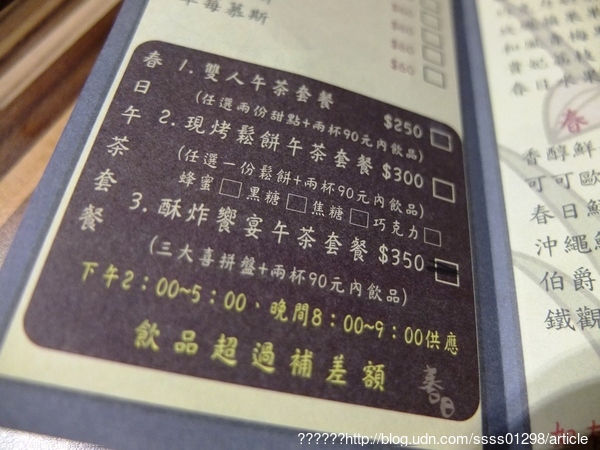 莓慕斯
$60
$60
春日午茶套餐
1. 雙人午茶套餐 $250
(任選兩份甜點+兩杯90元內飲品)
2. 現烤鬆餅午茶套餐 $300
(任選一份鬆餅+兩杯90元內飲品)
蜂蜜 黑糖 焦糖 巧克力
3. 酥炸饗宴午茶套餐 $350
(三大喜拼盤+兩杯90元內飲品)
下午2:00~5:00、晚間8:00~9:00供應
飲品超過補差額
春日
春日水果
春
香醇鮮
可可歐
春日鮮
沖繩
伯爵
鐵觀
??????http://blog.udn.com/ssss01298/article